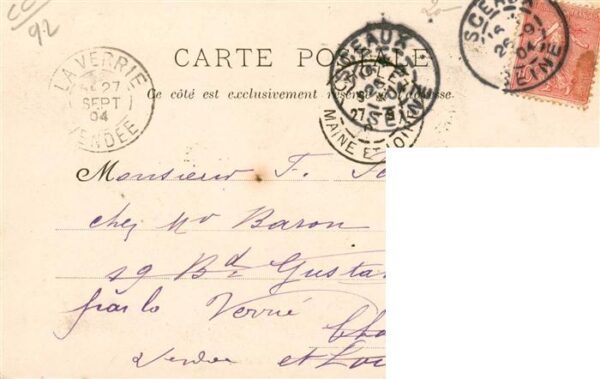 CC
92
CARTE POSTALE
Ce côté est exclusivement réservé à l'adresse.
LA VERRIE
27
SEPT
04
VENDÉE
SCEAUX
SEINE
CHOLET
27
MAINE ET LOIRE
SCEAUX
04
SEINE
Monsieur F.
chez Mr Baron
19 Bd Gusta
par la Verrie
Vendée et Loi